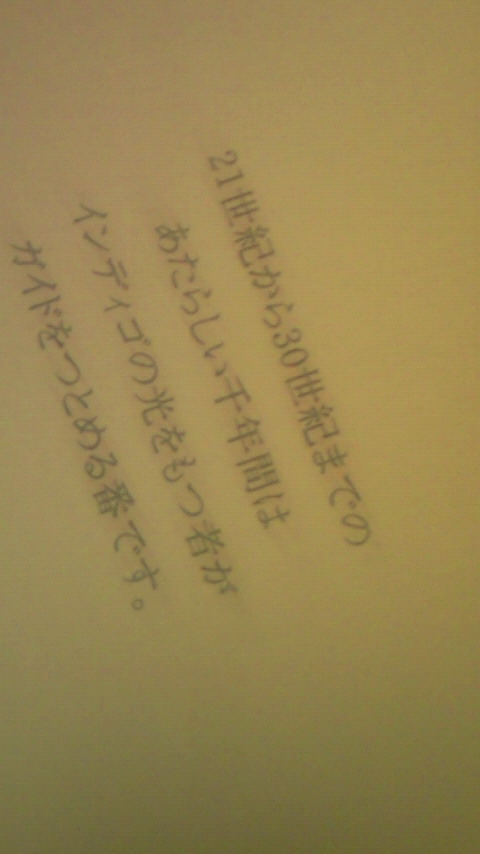 21世紀から30世紀までの
あたらしい千年間は
インディゴの光をもつ者が
ガイドをつとめる番です。